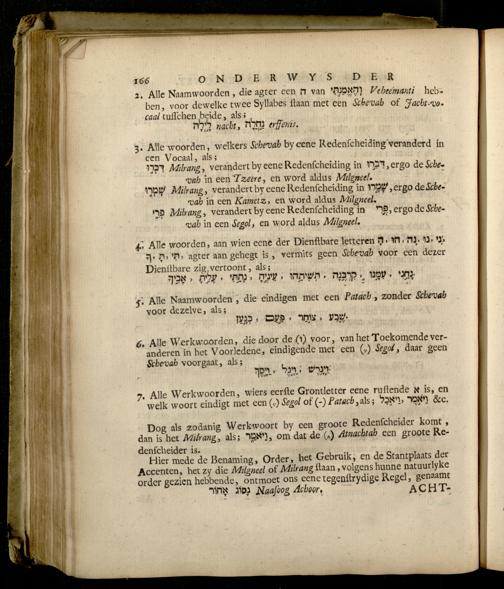 166 ONDERWYS DER
2. Alle Naamwoorden, die agter een ה van והאמנתי Veheemanti heb-
ben, voor dewelke twee Syllabes ſtaan met een Schevah of Jacht-vo-
caal tuſſchen beide, als;
לילה nacht, נחלה erffenis.
3. Alle woorden, welkers Schevah by eene Redenſcheiding veranderd in
een Vocaal, als;
דברו Milrang, verandert by eene Redenſcheiding in דברו, ergo de Sche-
vah in een Tzeere, en word aldus Milgneel.
שמרו Milrang, verandert by eene Redenſcheiding in שמרו, ergo de Sche-
vah in een Kametz, en word aldus Milgneel.
פרי Milrang, verandert by eene Redenſcheiding in פרי, ergo de Sche-
vah in een Segol, en word aldus Milgneel.
4. Alle woorden, aan wien eene der Dienſtbare letteren
agter aan gehegt is, vermits geen Schevah voor een dezer
Dienſtbare zig vertoont, als;
5. Alle Naamwoorden, die eindigen met een Patach, zonder Schevah
voor dezelve, als;
שבע, צוחר, פעם, כנען.
6. Alle Werkwoorden, die door de (ו) voor, van het Toekomende ver-
anderen in het Voorledene, eindigende met een Segol, daar geen
Schevah voorgaat, als;
7. Alle Werkwoorden, wiers eerſte Grontletter eene ruſtende א is, en
welk woort eindigt met een Segol of (-) Patach, als; ויאכל, ויאמר &c.
Dog als zodanig Werkwoort by een groote Redenſcheider komt,
dan is het Milrang, als; ויאמר, om dat de Atnachtah een groote Re-
denſcheider is.
Hier mede de Benaming, Order, het Gebruik, en de Stantplaats der
Accenten, het zy die Milgneel of Milrang ſtaan, volgens hunne natuurlyke
order gezien hebbende, ontmoet ons eene tegenſtrydige Regel, genaamt
נסוג אחור Naaſoog Achoor. ACHT-